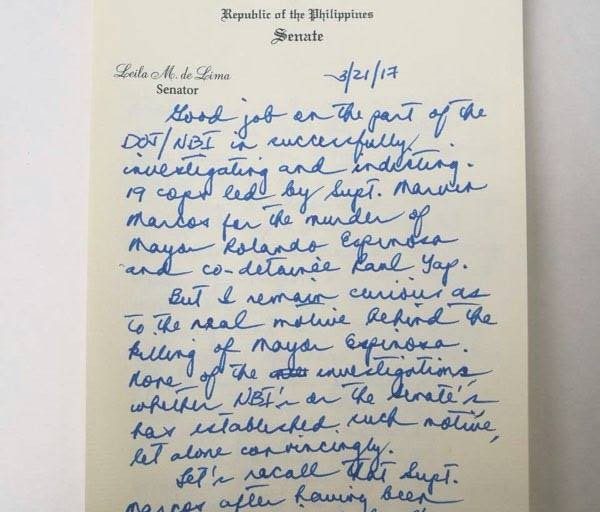 Republic of the Philippines
Senate
Leila M. de Lima
Senator
3/21/17
Good job on the part of the
DOJ/NBI in successfully
investigating and indicting
19 cops led by Supt. Marvin
Marcos for the murder of
Mayor Rolando Espinosa
and co-detainee Raul Yap.
But I remain curious as
to the real motive behind the
killing of Mayor Espinosa.
None of the investigations
whether NBI's or the Senate's
has established such motive,
let alone convincingly.
Let's recall that Supt.
Marcos after having been